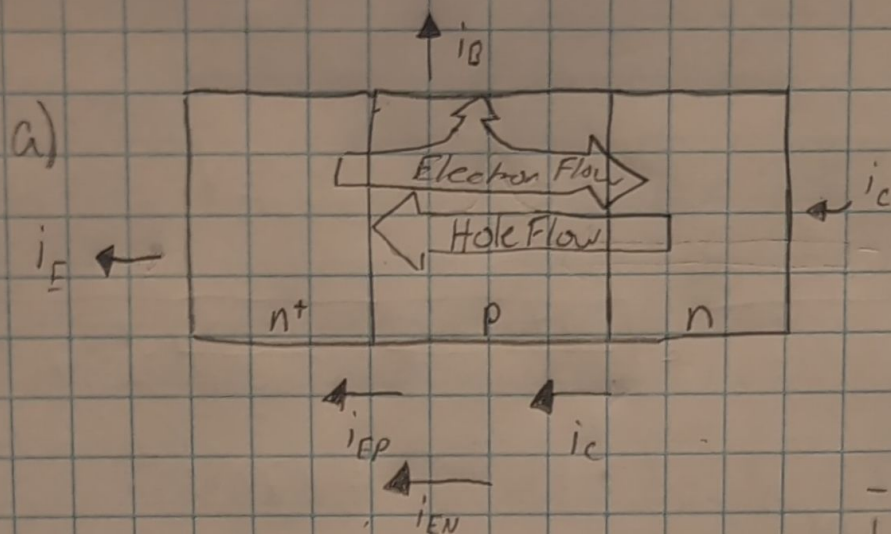 i_B
a)
Electron Flow
i_C
Hole Flow
i_E
n⁺ p n
i_EP i_C
i_EN